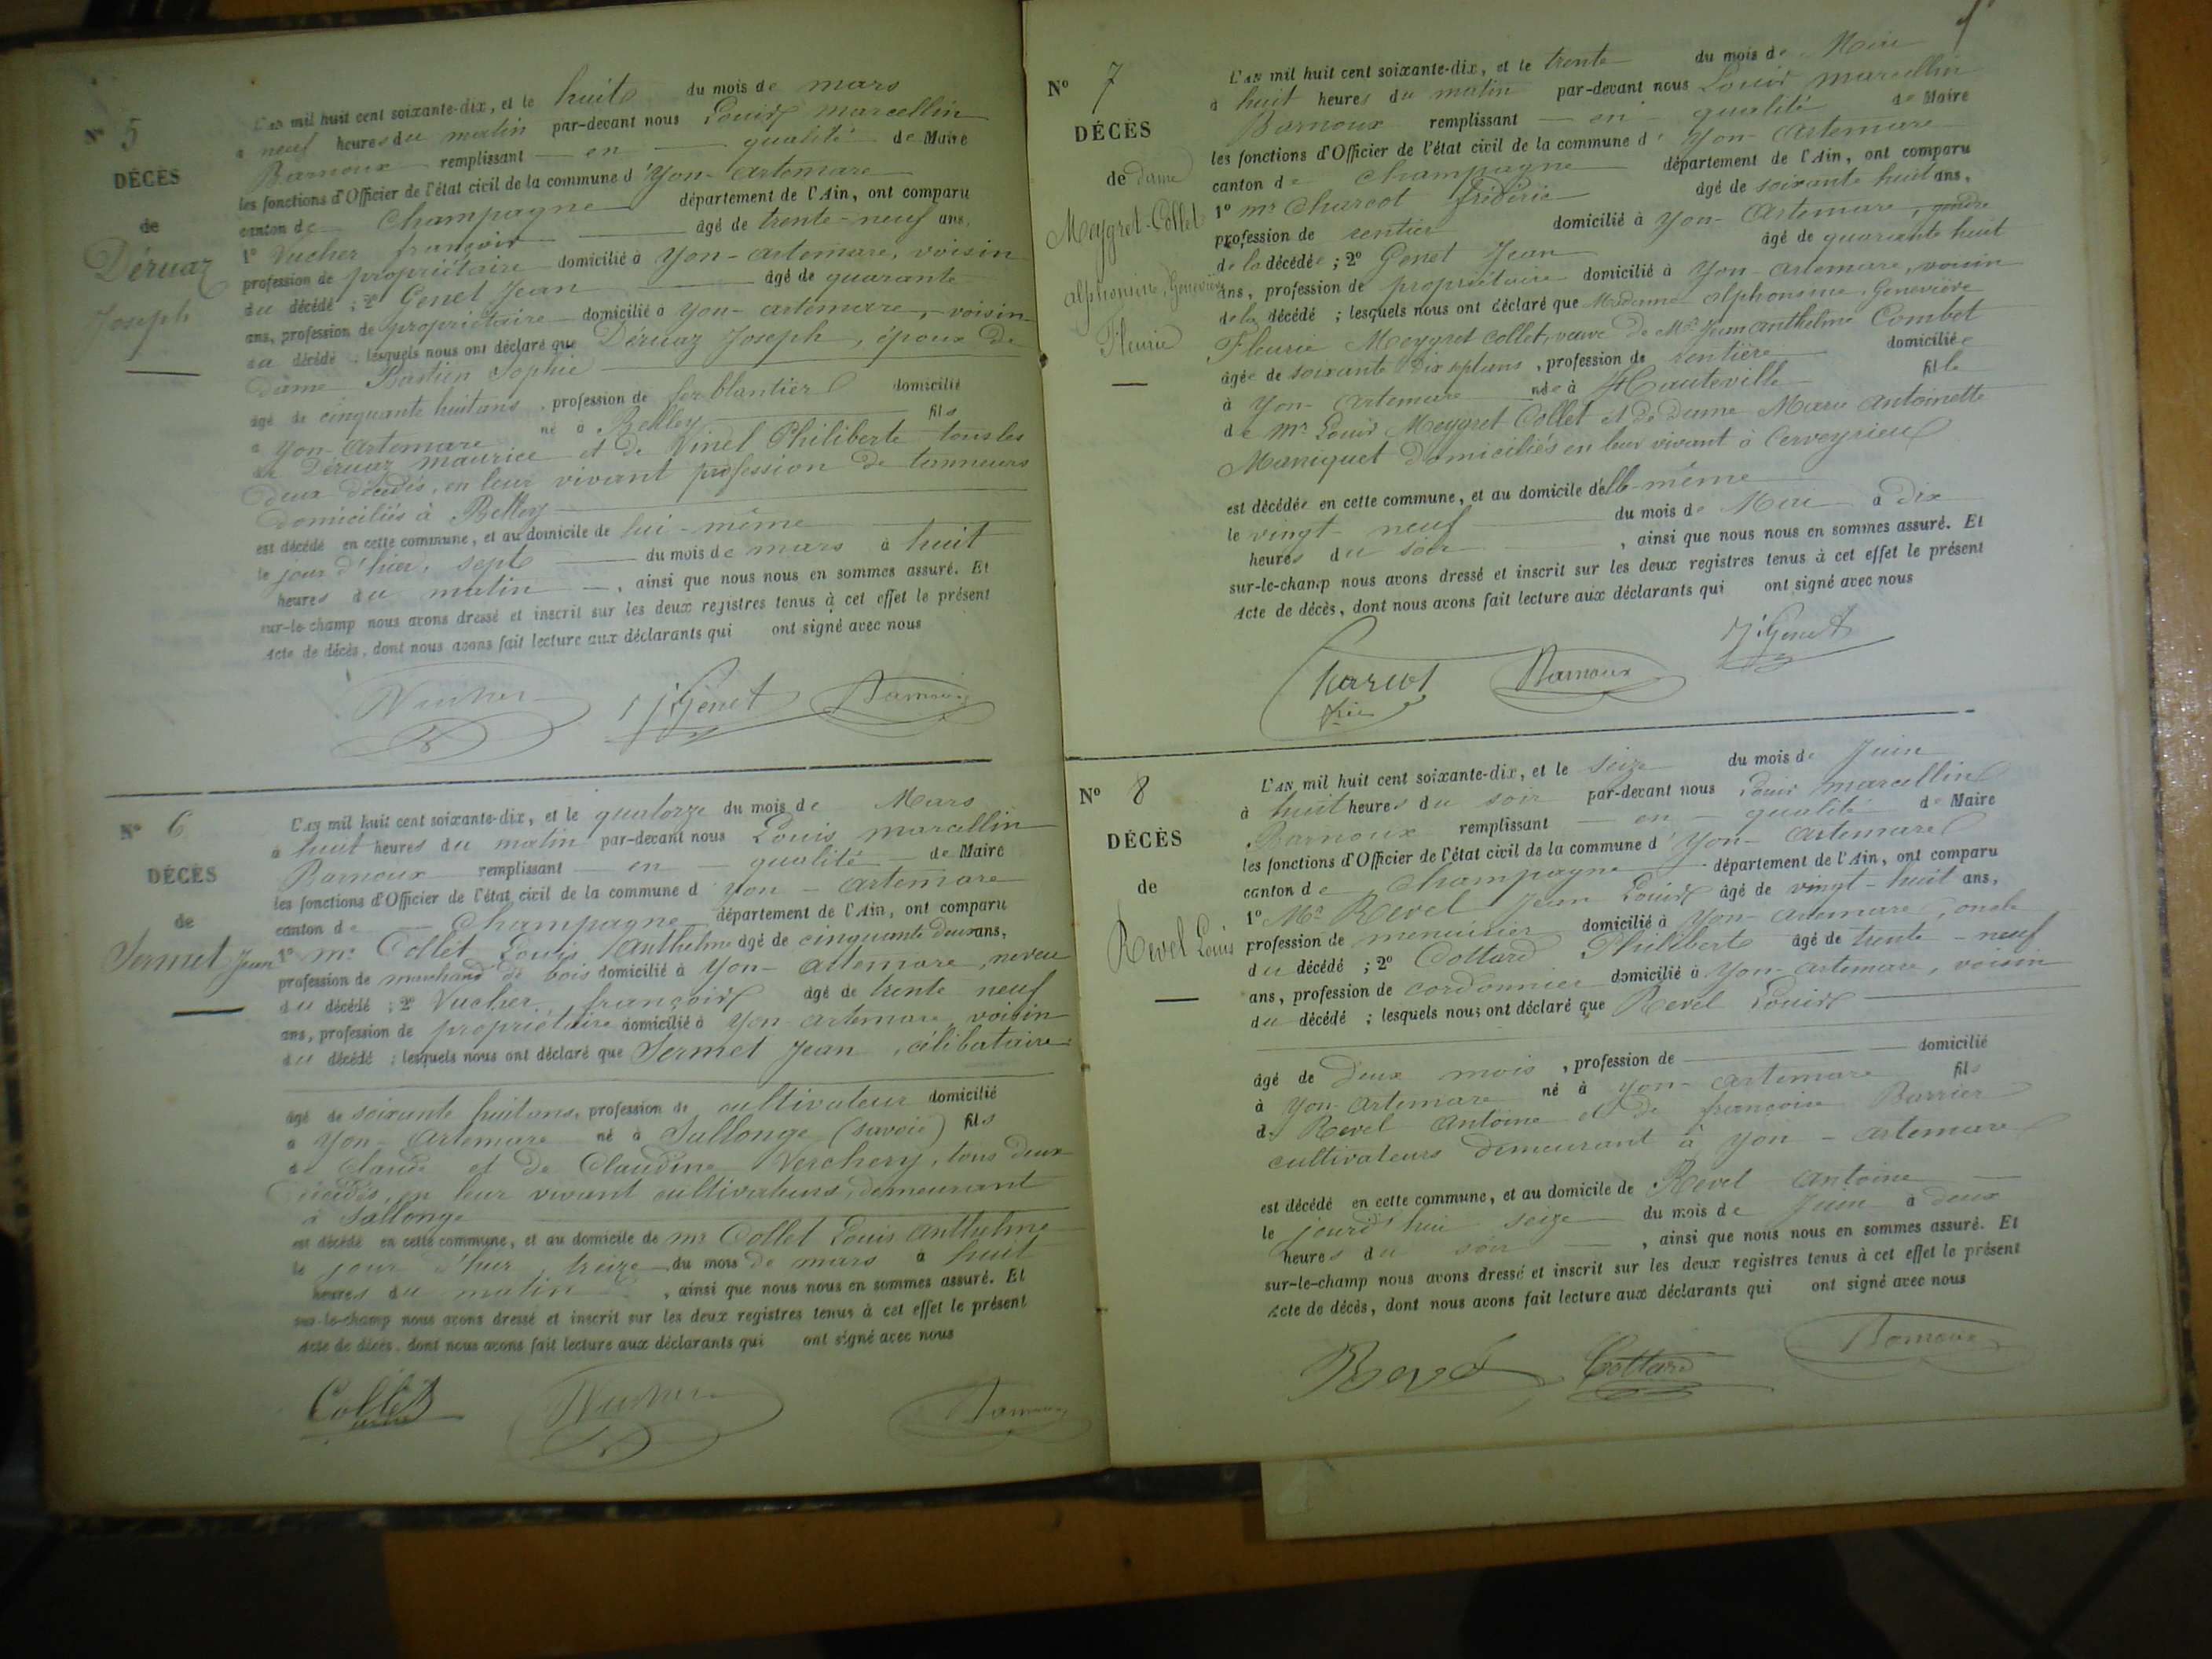 N° 5
DÉCÈS
de
Déruaz
Joseph
L'AN mil huit cent soixante-dix, et le huit du mois de mars
à neuf heures du matin par-devant nous Louis Marcellin
Barnoux remplissant en qualité de Maire
les fonctions d'Officier de l'état civil de la commune d'Yon-Artemare
canton de Champagne département de l'Ain, ont comparu
1° Vucher françois âgé de trente-neuf ans,
profession de propriétaire domicilié à Yon-artemare, voisin
du décédé ; 2° Genet Jean âgé de quarante
ans, profession de propriétaire domicilié à Yon-artemare, voisin
du décédé ; lesquels nous ont déclaré que Déruaz Joseph, époux de
Dame Bastien Sophie
âgé de cinquante huit ans, profession de ferblantier domicilié
à Yon-Artemare né à Belley fils
de Déruaz maurice et de Vinel Philiberte tous les
deux décédés, en leur vivant profession de tanneurs
domiciliés à Belley
est décédé en cette commune, et au domicile de lui-même
le jour d'hier, sept du mois de mars à huit
heures du matin, ainsi que nous nous en sommes assuré. Et
sur-le-champ nous avons dressé et inscrit sur les deux registres tenus à cet effet le présent
Acte de décès, dont nous avons fait lecture aux déclarants qui ont signé avec nous
Vucher J Genet Barnoux
N° 6
DÉCÈS
de
Sermet Jean
L'AN mil huit cent soixante-dix, et le quatorze du mois de Mars
à huit heures du matin par-devant nous Louis Marcellin
Barnoux remplissant en qualité de Maire
les fonctions d'Officier de l'état civil de la commune d'Yon-artemare
canton de Champagne département de l'Ain, ont comparu
1° mr Collet Louis Anthelme âgé de cinquante deux ans,
profession de marchand de bois domicilié à Yon-artemare, neveu
du décédé ; 2° Vucher françois âgé de trente neuf
ans, profession de propriétaire domicilié à Yon-artemare, voisin
du décédé ; lesquels nous ont déclaré que Sermet Jean, célibataire
âgé de soixante huit ans, profession de cultivateur domicilié
à Yon-Artemare né à Sallonge (Savoie) fils
de Claude et de Claudine Verchery, tous deux
décédés, en leur vivant cultivateurs, demeurant
à Sallonge
est décédé en cette commune, et au domicile de mr Collet Louis Anthelme
le jour d'hier, treize du mois de mars à huit
heures du matin, ainsi que nous nous en sommes assuré. Et
sur-le-champ nous avons dressé et inscrit sur les deux registres tenus à cet effet le présent
Acte de décès, dont nous avons fait lecture aux déclarants qui ont signé avec nous
Collet Vucher Barnoux
N° 7
DÉCÈS
de dame
Meygret-Collet
Alphonsine, Geneviève
Fleurie
L'AN mil huit cent soixante-dix, et le trente du mois de Mai
à huit heures du matin par-devant nous Louis Marcellin
Barnoux remplissant en qualité de Maire
les fonctions d'Officier de l'état civil de la commune d'Yon-Artemare
canton de Champagne département de l'Ain, ont comparu
1° mr Charcot frédéric âgé de soixante huit ans,
profession de rentier domicilié à Yon-Artemare, gendre
de la décédée ; 2° Genet Jean âgé de quarante huit
ans, profession de propriétaire domicilié à Yon-artemare, voisin
de la décédé ; lesquels nous ont déclaré que Madame Alphonsine, Geneviève
Fleurie Meygret Collet, veuve de Mr Jean Anthelme Combet
âgée de soixante dix sept ans, profession de rentière domiciliée
à Yon-Artemare née à Hauteville fille
de mr Louis Meygret Collet et de dame Marie Antoinette
Marriquet domiciliés en leur vivant à Cerveyrieu
est décédée en cette commune, et au domicile d'elle-même
le vingt-neuf du mois de Mai à dix
heures du soir, ainsi que nous nous en sommes assuré. Et
sur-le-champ nous avons dressé et inscrit sur les deux registres tenus à cet effet le présent
Acte de décès, dont nous avons fait lecture aux déclarants qui ont signé avec nous
Charcot Barnoux J Genet
N° 8
DÉCÈS
de
Revel Louis
L'AN mil huit cent soixante-dix, et le seize du mois de Juin
à huit heures du soir par-devant nous Louis Marcellin
Barnoux remplissant en qualité de Maire
les fonctions d'Officier de l'état civil de la commune d'Yon-Artemare
canton de Champagne département de l'Ain, ont comparu
1° Mr Revel Jean Louis âgé de vingt-huit ans,
profession de menuisier domicilié à Yon-Artemare, oncle
du décédé ; 2° Cottard Philiberte âgé de trente-neuf
ans, profession de cordonnier domicilié à Yon-Artemare, voisin
du décédé ; lesquels nous ont déclaré que Revel Louis
âgé de deux mois, profession de domicilié
à Yon-Artemare né à Yon-Artemare fils
de Revel Antoine et de françoise Barrier
cultivateurs demeurant à Yon-Artemare
est décédé en cette commune, et au domicile de Revel Antoine
le jourd'hui seize du mois de Juin à deux
heures du soir, ainsi que nous nous en sommes assuré. Et
sur-le-champ nous avons dressé et inscrit sur les deux registres tenus à cet effet le présent
Acte de décès, dont nous avons fait lecture aux déclarants qui ont signé avec nous
Revel Cottard Barnoux